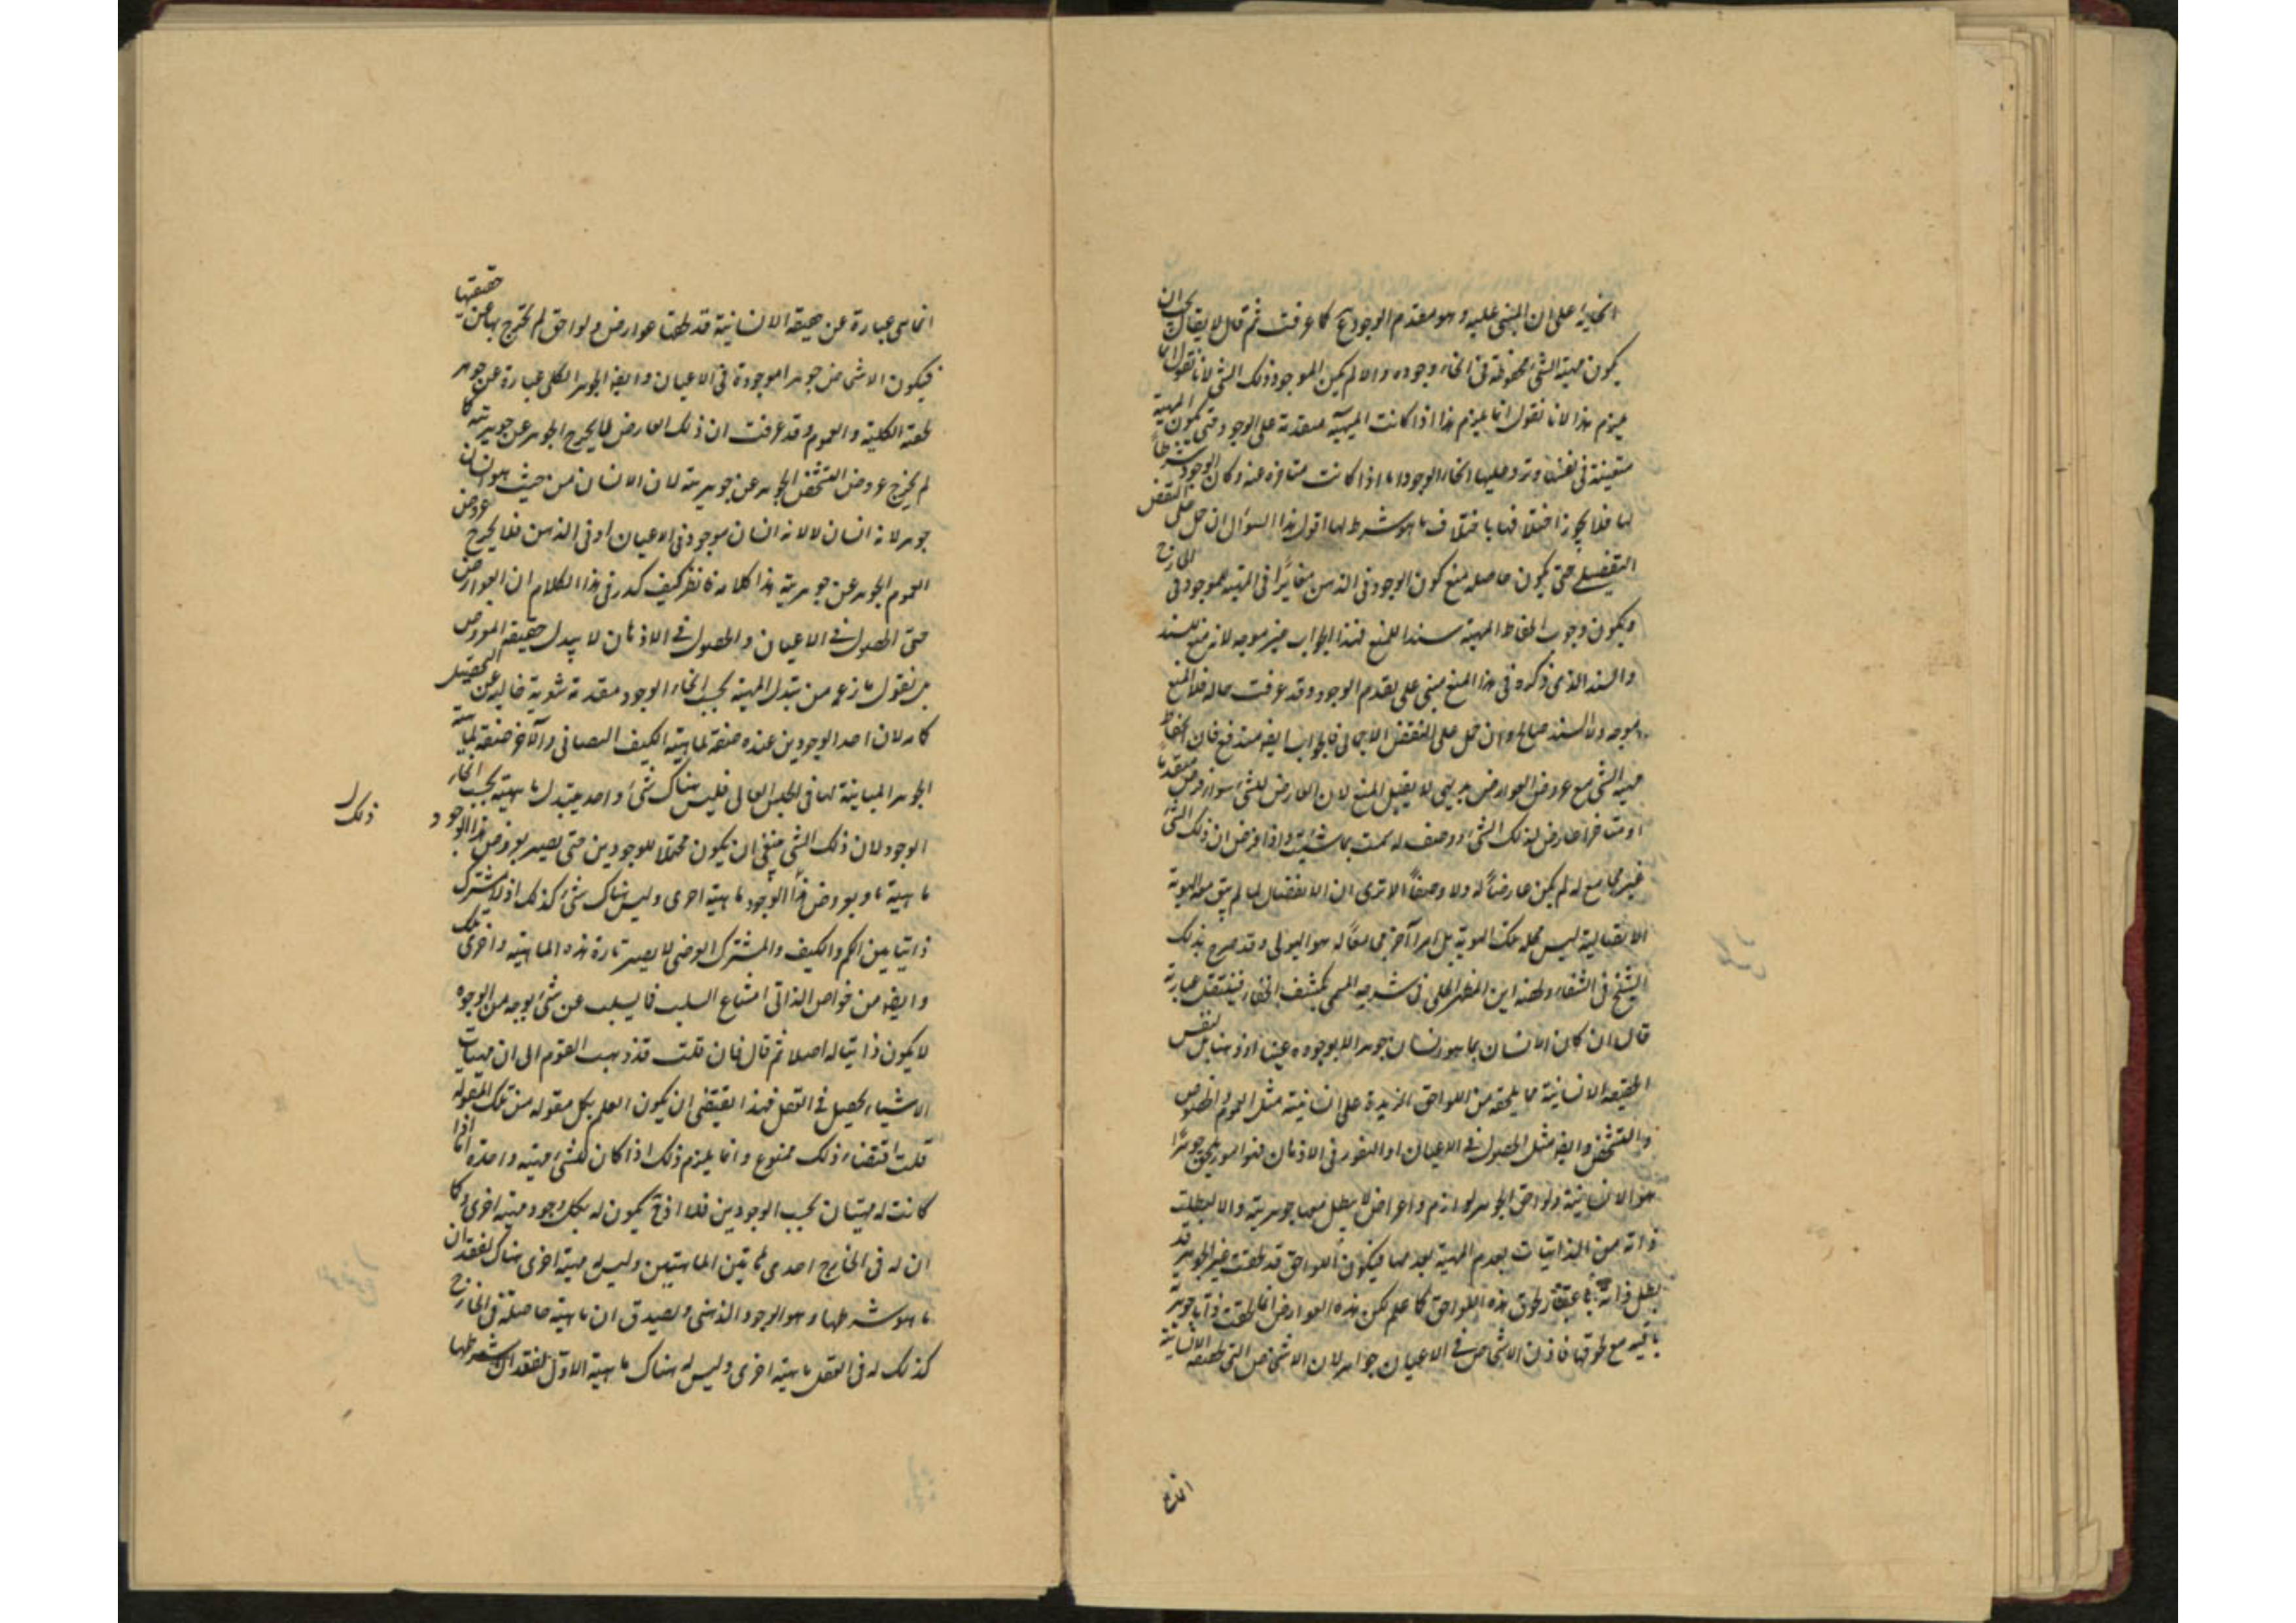 على ان المبنى عليه وهو مقدم الوجود كما عرفت ثم قال لا يقال يجب ان
يكون مهية الشي محفوظة في انحاء وجوده والا لم يكن الموجود ذلك الشي لانا نقول
يلزم هذا لانا نقول انما يلزم هذا اذا كانت المهية متقدمة على الوجود حتى يكون المهية
متعينة في نفسها وترد عليها انحاء الوجود اما اذا كانت متاخره عنه وكان الوجود شرطاً
لها فلا يجوز اختلافها باختلاف ما هو شرط لها اقول هذا السؤال ان حمل على النقض
التفصيلي حتى يكون حاصله منع كون الوجود في الذهن مغايرا في المهية للموجود في الخارج
ويكون وجوب انحفاظ المهية سندا للمنع فهذا الجواب غير موجه لانه منع للسند
والسند الذى ذكره في هذا المنع مبنى على تقدم الوجود وقد عرفت حاله فلا المنع
موجه ولا السند صالح وان حمل على النقض الاجمالى فالجواب ايضا مندفع فان انحفاظ
مهية الشي مع عروض العوارض بديهى لا يقبل المنع لان العارض للشي سواء فرض متقدما
او متاخرا عارض لذلك الشي ووصف له سمت بما شئت واذا فرض ان ذلك الشي
غير مجامع له لم يكن عارضاً له ولا وصفاً الا ترى ان الانفصال لما لم يبق معه الهوية
الاتصالية ليس محله تلك الهوية بل امرا آخر معاً له هو الهيولى وقد صرح بذلك
الشيخ في الشفاء ولخصه ابن المطهر الحلى في شرحه المسمى بكشف الخفاء فلننقل عبارته
قال ان كان الانسان بما هو انسان جوهرا لا لوجوده عينا او ذهنا بل لنفس
الحقيقة الانسانية مما يلحقه من اللواحق المزيدة على انسانيته مثل العموم والخصوص
والتشخص وايضا مثل الحصول في الاعيان او التقرر في الاذهان فهو امور يلحق جوهرا
هو الانسانية ولواحق الجوهر لوازم واعراض لا يبطل معها جوهريته والا لبطلت
ذاته من الذاتيات بعدم المهية بعدمها فيكون اللواحق قد لحقت غير الجوهر قد
بطل ذاته لحوق هذه اللواحق كما علم لكن هذه العوارض انما لحقت ذاتا جوهرية
باقية مع لحوقها فاذن الاشخاص في الاعيان جواهر لان الاشخاص التى الانسانية
انما هى عبارة عن حقيقة الانسانية قد لحقها عوارض ولواحق لم تخرج بها عن حقيقتها
فيكون الاشخاص جوهرا موجودة في الاعيان وايضا الجوهر الكلى عبارة عن جوهر
لحقته الكلية والعموم وقد عرفت ان ذلك العارض لا يخرج الجوهر عن جوهريته كما
لم يخرج عروض التشخص الجوهر عن جوهريته لان الانسان من حيث هو انسان
جوهر لانه انسان لا لانه انسان موجود في الاعيان او في الذهن فلا يخرج عروض
العموم الجوهر عن جوهريته هذا كلامه فانظر كيف كرر في هذا الكلام ان العوارض
حتى الحصول في الاعيان والحصول في الاذهان لا يبدل حقيقة المعروض
بل نقول ما زعم من تبدل المهية بحسب انحاء الوجود مقدمة شعرية خالية عن التحصيل
كما مر لان احد الوجودين عنده صفة لماهية الكيف النفسانى والآخر صفة لماهية
الجوهر المباينة لها في الجنس العالى فليس هناك شئ واحد يتبدل ماهيته بحسب انحاء
الوجود لان ذلك الشي ينبغى ان يكون محتملا للوجودين حتى يصير بعروض هذا الوجود
ماهية ما وبعروض ذلك الوجود ماهية اخرى وليس هناك شئ كذلك اذ لا مشترك
ذلك
ذاتيا بين الكم والكيف والمشترك العرضى لا يصير تارة هذه الماهية واخرى تلك
وايضا من خواص الذاتى امتناع السلب فما يسلب عن شئ بوجه من الوجوه
لا يكون ذاتيا له اصلا ثم قال فان قلت قد ذهب القوم الى ان مهيات
الاشياء يحصل في العقل فهذا يقتضى ان يكون العلم بكل مقولة من تلك المقولة
قلت اقتضاء ذلك ممنوع وانما يلزم ذلك اذا كان للشئ مهية واحدة اما اذا
كانت له مهيتان بحسب الوجودين فلا اذ ح يكون له بكل وجود مهية اخرى وكما
ان له في الخارج احدى هاتين الماهيتين وليس له مهية اخرى هناك لفقدان
ما هو شرطها وهو الوجود الذهنى ويصدق ان ماهيته حاصلة في الخارج
كذلك له في العقل ماهية اخرى وليس له هناك ماهية الاول لفقدان شرطها